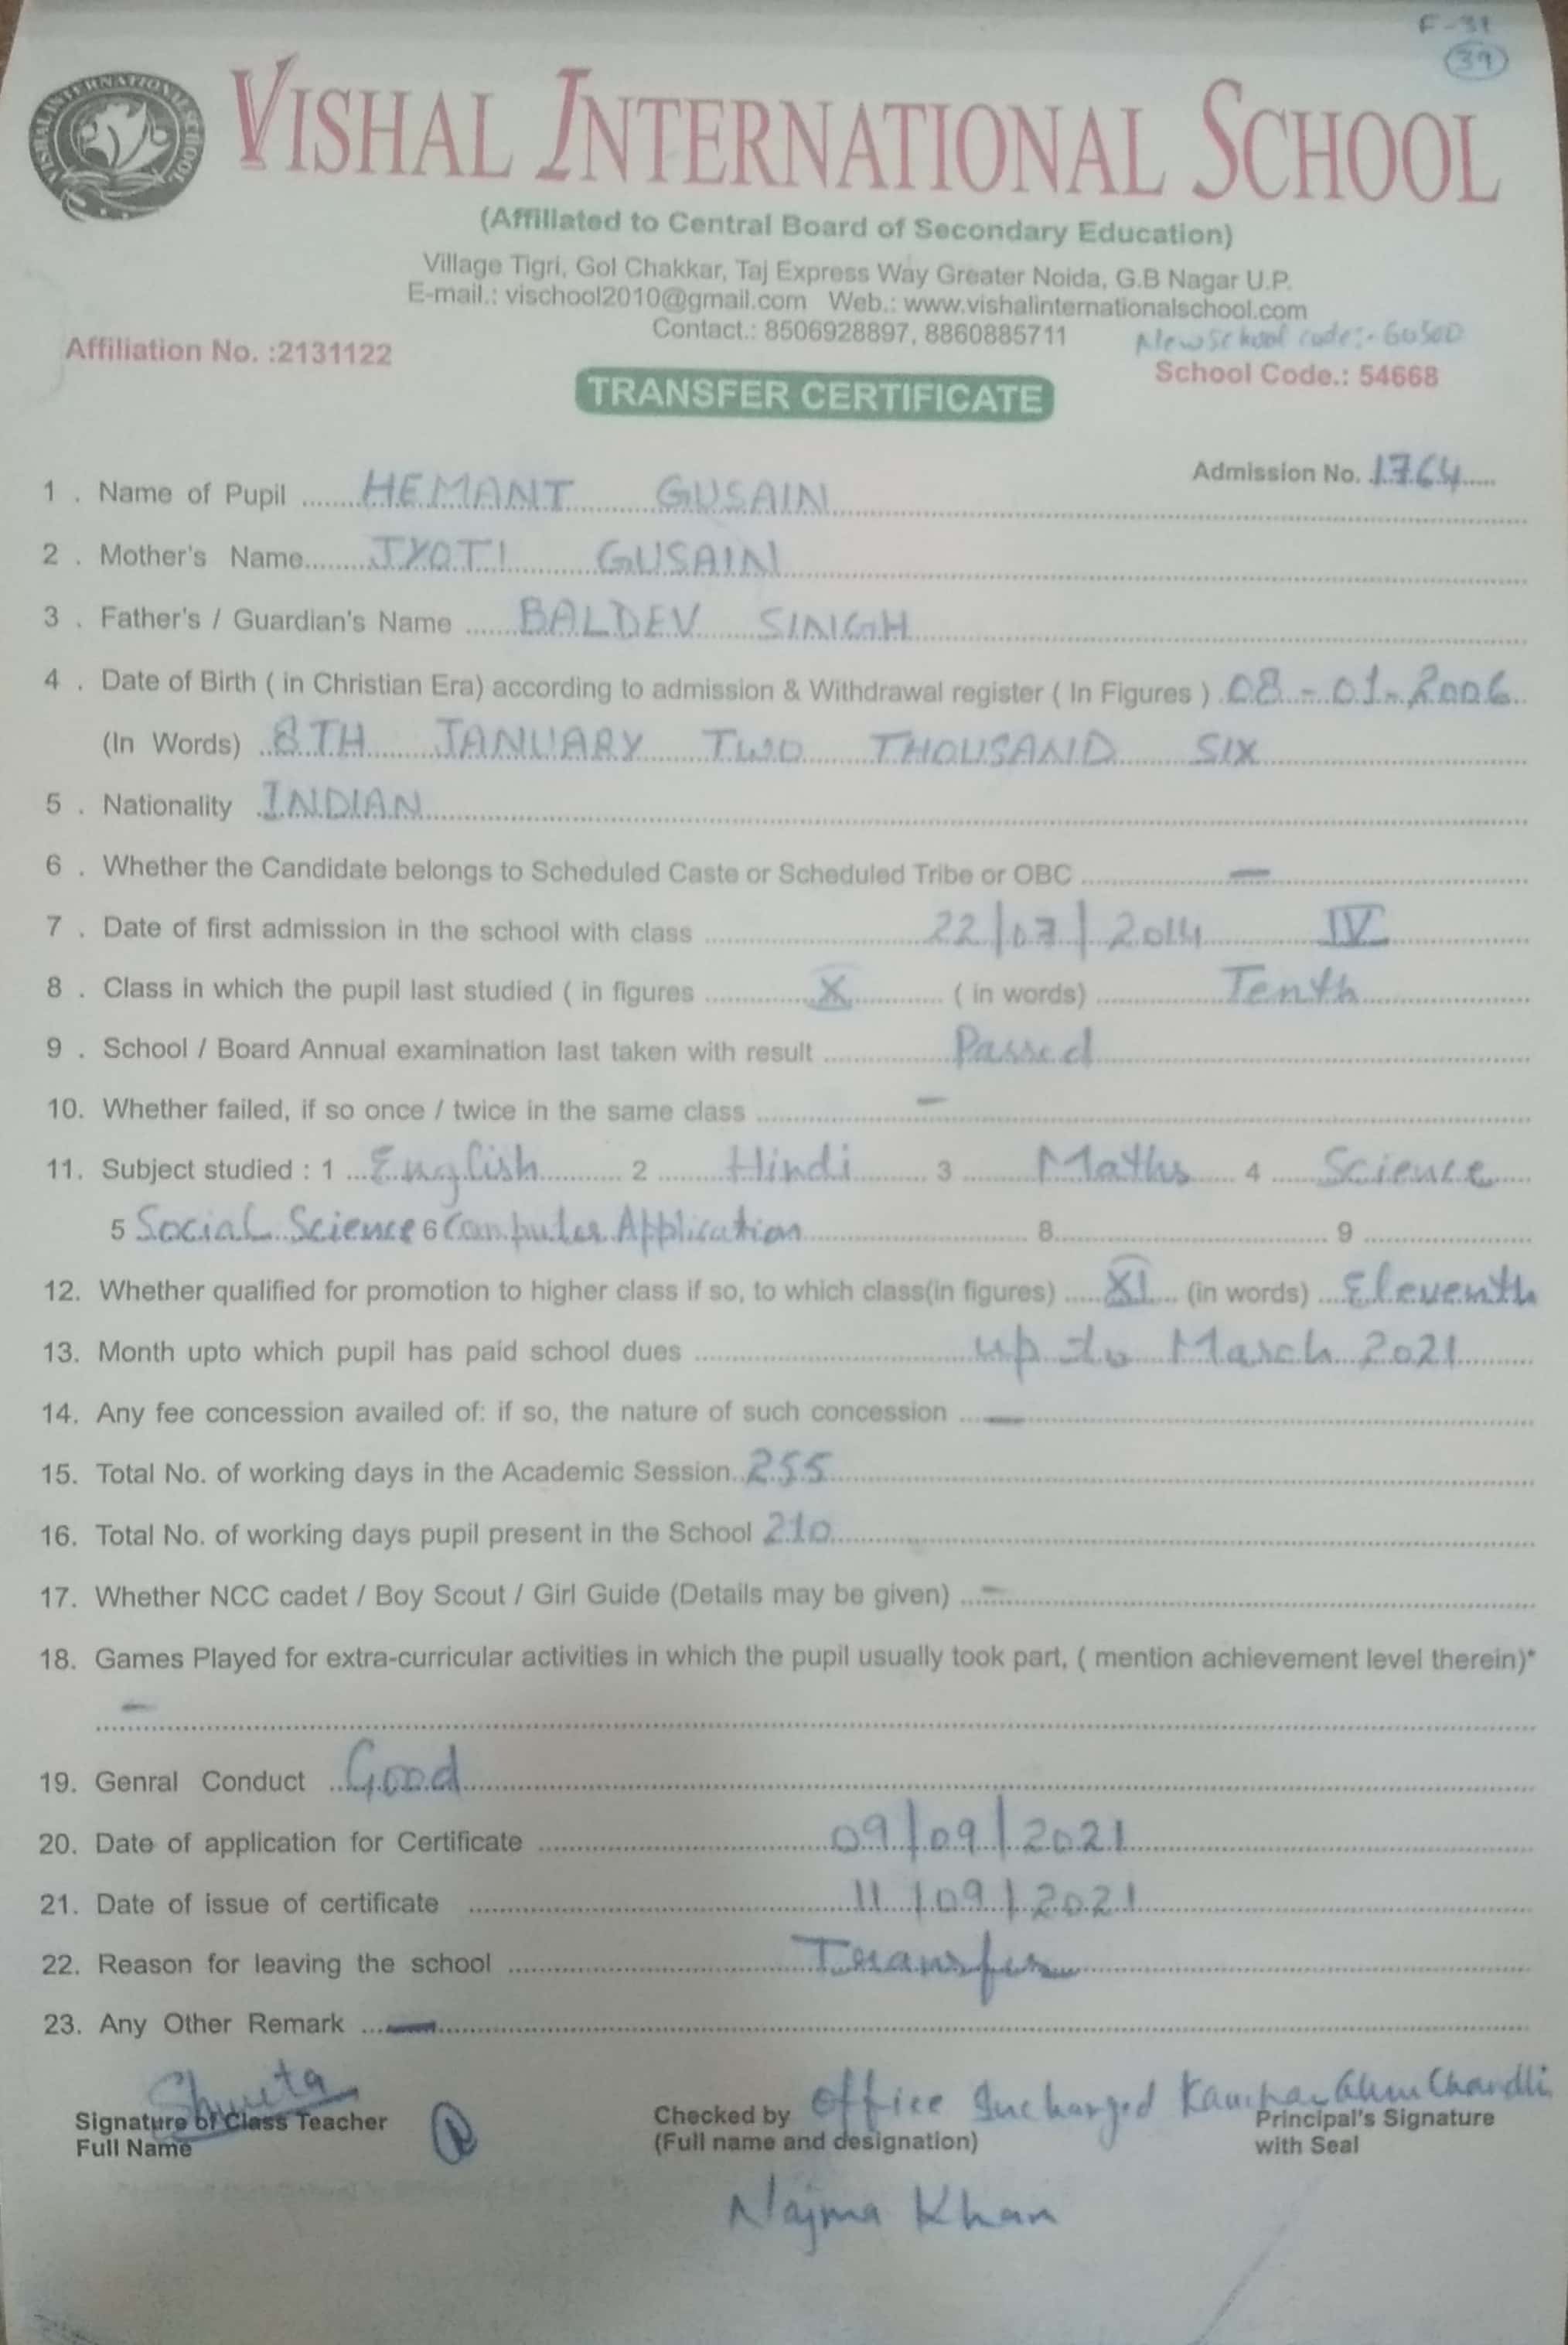 F-31
39
VISHAL INTERNATIONAL SCHOOL
VISHAL INTERNATIONAL SCHOOL
(Affiliated to Central Board of Secondary Education)
Village Tigri, Gol Chakkar, Taj Express Way Greater Noida, G.B Nagar U.P.
E-mail.: vischool2010@gmail.com Web.: www.vishalinternationalschool.com
Contact.: 8506928897, 8860885711
New School code:- 60500
Affiliation No. :2131122
School Code.: 54668
TRANSFER CERTIFICATE
Admission No. 1764
1 . Name of Pupil HEMANT GUSAIN
2 . Mother's Name JYOTI GUSAIN
3 . Father's / Guardian's Name BALDEV SINGH
4 . Date of Birth ( in Christian Era) according to admission & Withdrawal register ( In Figures ) 08-01-2006
(In Words) 8TH JANUARY TWO THOUSAND SIX
5 . Nationality INDIAN
6 . Whether the Candidate belongs to Scheduled Caste or Scheduled Tribe or OBC —
7 . Date of first admission in the school with class 22/07/2014 IV
8 . Class in which the pupil last studied ( in figures X ( in words) Tenth
9 . School / Board Annual examination last taken with result Passed
10. Whether failed, if so once / twice in the same class —
11. Subject studied : 1 English 2 Hindi 3 Maths 4 Science
5 Social Science 6 Computer Application 8 9
12. Whether qualified for promotion to higher class if so, to which class(in figures) XI (in words) Eleventh
13. Month upto which pupil has paid school dues up to March 2021
14. Any fee concession availed of: if so, the nature of such concession —
15. Total No. of working days in the Academic Session 255
16. Total No. of working days pupil present in the School 210
17. Whether NCC cadet / Boy Scout / Girl Guide (Details may be given) —
18. Games Played for extra-curricular activities in which the pupil usually took part, ( mention achievement level therein)*
—
19. Genral Conduct Good
20. Date of application for Certificate 09/09/2021
21. Date of issue of certificate 11/09/2021
22. Reason for leaving the school Transfer
23. Any Other Remark —
Shweta
Signature of Class Teacher
Full Name
Checked by Office Incharged
(Full name and designation)
Najma Khan
Principal's Signature
with Seal